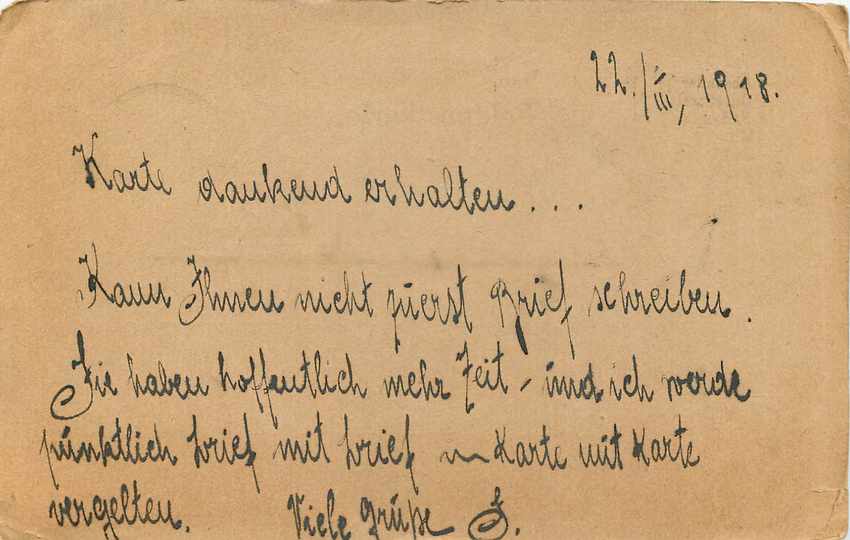 22./III, 1918.
Karte dankend erhalten...
Kann Ihnen nicht zuerst Brief schreiben.
Sie haben hoffentlich mehr Zeit - und ich werde
pünktlich brief mit brief Karte mit Karte
vergelten. Viele grüße S.